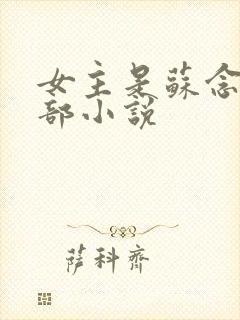 女主是蘇念
部小說
薩科齊